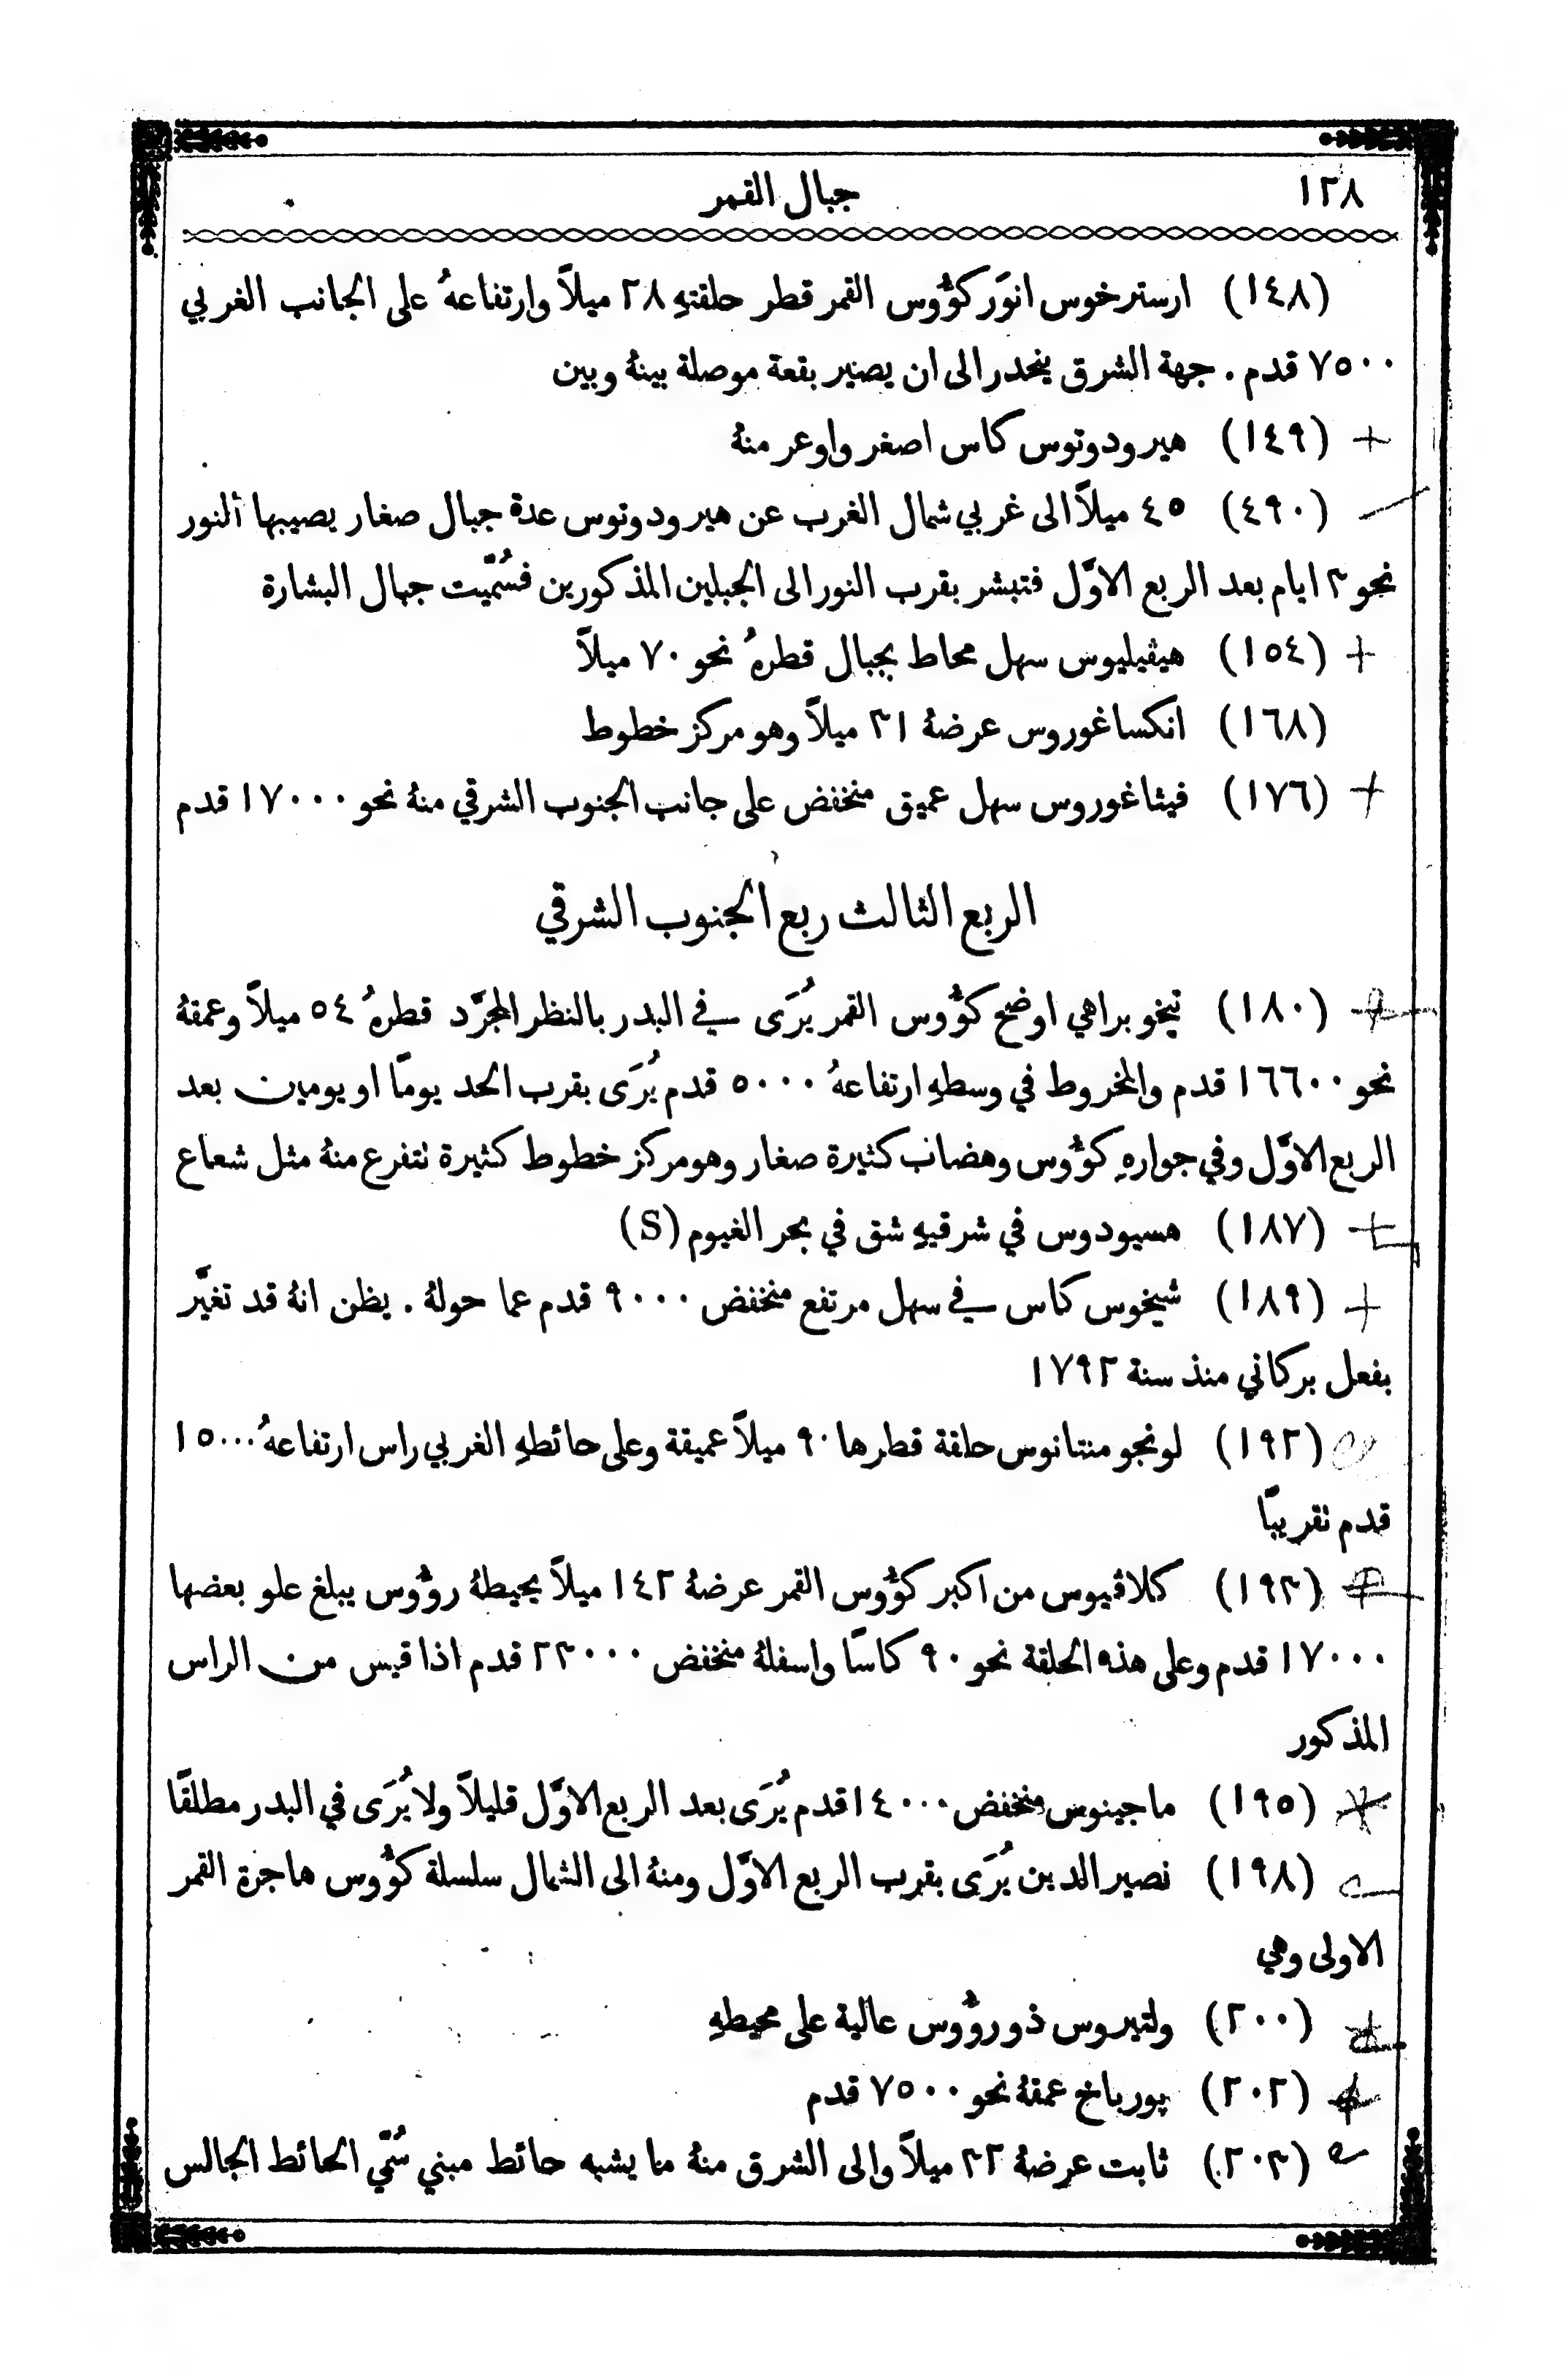 ١٢٨ جبال القمر
(١٤٨) ارسترخوس انوَر كؤُوس القمر قطر حلقتهِ ٢٨ ميلاً وارتفاعهُ على الجانب الغربي
٧٥٠٠ قدم . جهة الشرق ينحدر الى ان يصير بقعة موصلة بينهُ وبين
(١٤٩) هيرودوتوس كاس اصغر واوعر منهُ
(٤٩٠) ٤٥ ميلاً الى غربي شمال الغرب عن هيرودوتوس عدة جبال صغار يصيبها النور
نحو ٣ ايام بعد الربع الاوَّل فتبشر بقرب النور الى الجبلين المذكورين فسُمّيت جبال البشارة
(١٥٤) هيڤيليوس سهل محاط بجبال قطرهُ نحو ٧٠ ميلاً
(١٦٨) انكساغوروس عرضهُ ٣١ ميلاً وهو مركز خطوط
(١٧٦) فيثاغوروس سهل عميق منخفض على جانب الجنوب الشرقي منهُ نحو ١٧٠٠٠ قدم
الربع الثالث ربع الجنوب الشرقي
(١٨٠) تيخو براهي اوضح كؤُوس القمر يُرَى في البدر بالنظر المجرَّد قطرهُ ٥٤ ميلاً وعمقهُ
نحو ١٦٦٠٠ قدم والمخروط في وسطهِ ارتفاعهُ ٥٠٠٠ قدم يُرَى بقرب الحد يومًا او يومين بعد
الربع الاوَّل وفي جوارهِ كؤُوس وهضاب كثيرة صغار وهو مركز خطوط كثيرة نتفرع منهُ مثل شعاع
(١٨٧) هسيودوس في شرقيهِ شق في بحر الغيوم (S)
(١٨٩) شيخوس كاس في سهل مرتفع منخفض ٩٠٠٠ قدم عما حولهُ . يظن انهُ قد تغيَّر
بفعل بركاني منذ سنة ١٧٩٢
(١٩٢) لونجومنتانوس حلقة قطرها ٩٠ ميلاً عميقة وعلى حائطهِ الغربي راس ارتفاعهُ ١٥٠٠٠
قدم نقريبًا
(١٩٣) كلاڤيوس من اكبر كؤُوس القمر عرضهُ ١٤٢ ميلاً يحيطهُ رؤُوس يبلغ علو بعضها
١٧٠٠٠ قدم وعلى هذه الحلقة نحو ٩٠ كاسًا واسفلهُ منخفض ٢٣٠٠٠ قدم اذا قيس من الراس
المذكور
(١٩٥) ماجينوس منخفض ١٤٠٠٠ قدم يُرَى بعد الربع الاوَّل قليلاً ولا يُرَى في البدر مطلقًا
(١٩٨) نصير الدين يُرَى بقرب الربع الاوَّل ومنهُ الى الشمال سلسلة كؤُوس هاجرة القمر
الاولى وهي
(٢٠٠) ولتيروس ذو رؤُوس عالية على محيطهِ
(٢٠٢) پورباخ عمقهُ نحو ٧٥٠٠ قدم
(٢٠٣) ثابت عرضهُ ٣٢ ميلاً والى الشرق منهُ ما يشبه حائط مبني سُمّي الحائط الجالس